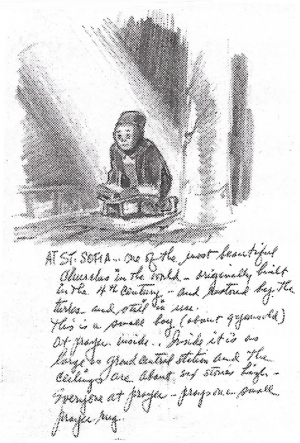 AT ST. SOFIA - one of the most beautiful
churches in the world - originally built
in the 4th century - and restored by the
turks - and still in use.
This is a small boy (about 9 years old)
at prayer inside.. Inside it is as
large as grand central station and the
ceilings are about six stories high -
Everyone at prayer - prays on a small
prayer rug.